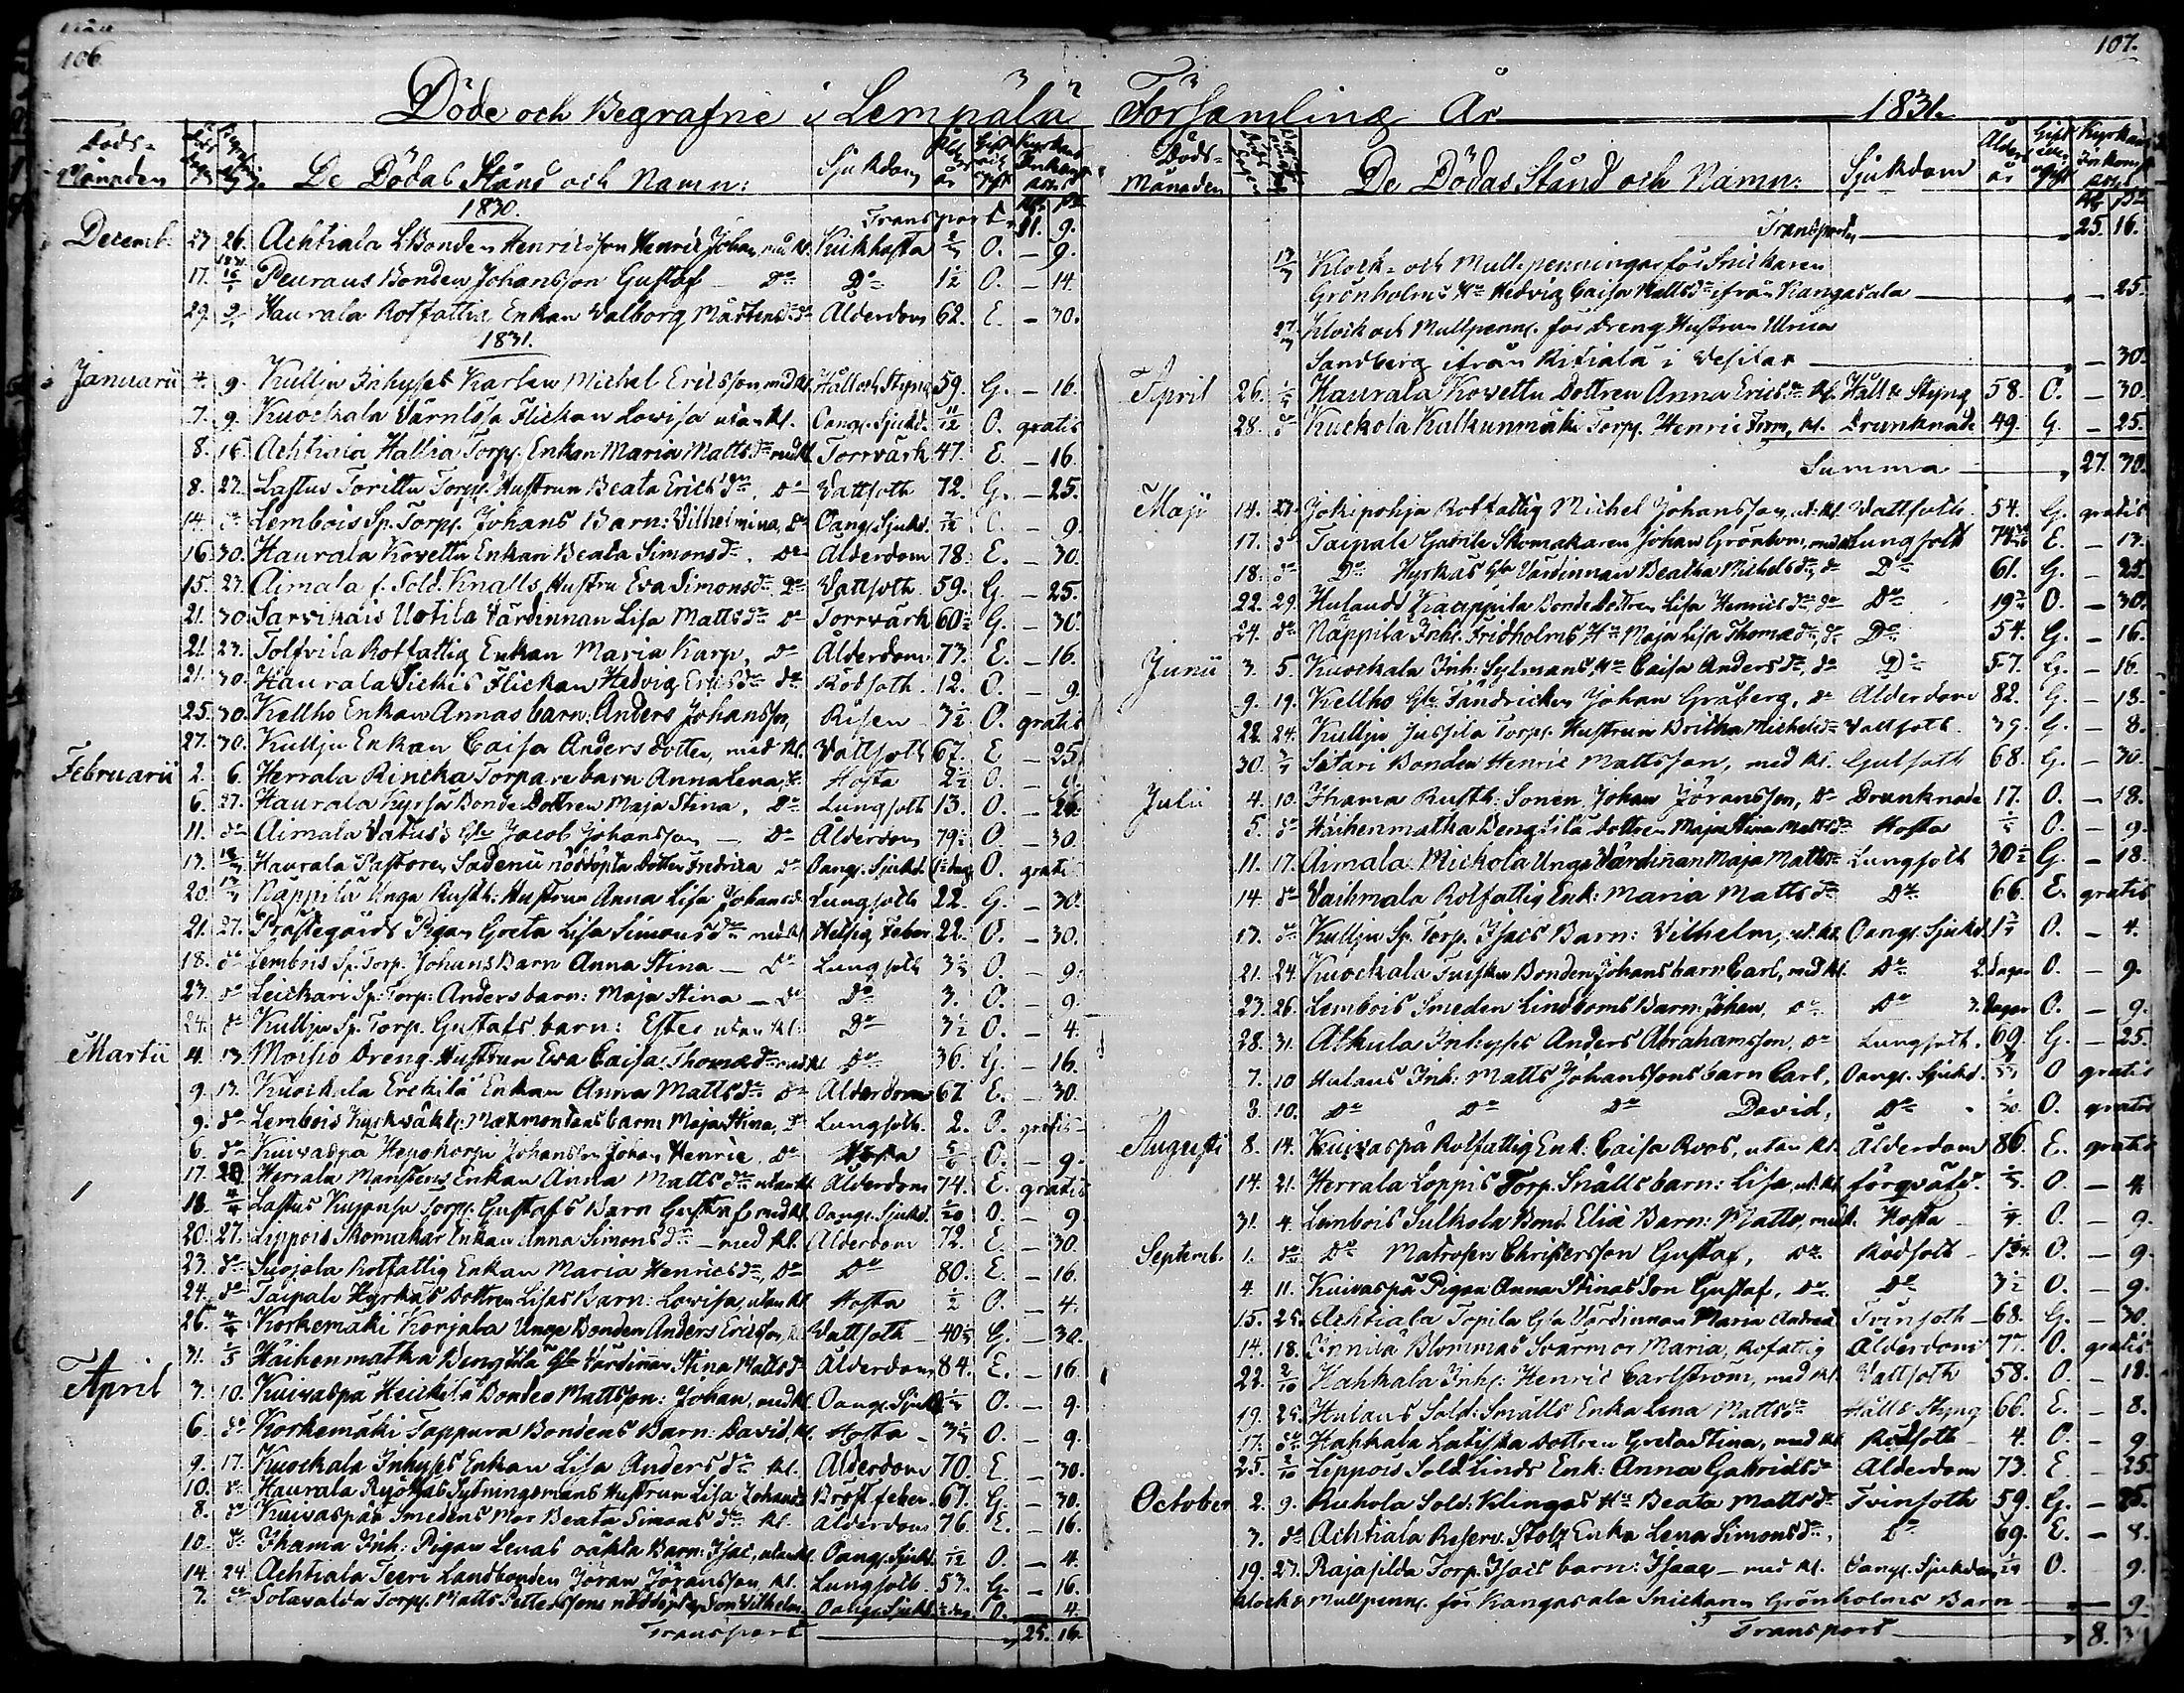 106
107.
Döde och Begrafne i Lempälä Församling År 1831.
Döds-Månaden De Dödas Stånd och Namn: Sjukdom
1830.
Transport 11. 9.
Decemb. 27. 26. Achtiala LBonden Henricsson Henric Johan, med Kl. Kikhosta O. — 9.
17. Peuraus Bonden Johansson Gustaf — Do Do 1½ O. — 14.
29. Haurala Rotfattig Enkan Walborg Mårtensdr Do Ålderdom 62. E. — 30.
1831.
Januarii 4. 9. Kullju Inhyses Karlen Michel Ericsson med Kl. Håll och Styng 59. G. — 16.
7. 9. Kuockala Värnlösa Flickan Lowisa utan Kl. Oang. Sjukd. 11/12 O. gratis
8. 16. Achtiala Hallia Torp. Enkan Maria Mattsdr med Kl. Torrvärk 47. E. — 16.
8. 27. Lastus Torittu Torp. Hustrun Beata Ericsdr, Do Vattsoth 72. G. — 25.
14. do Lembois Sp. Torp. Johans Barn: Vilhelmina, do Oang. Sjukd. O. — 9.
16. 30. Haurala Kovettu Enkan Beata Simonsdr. Do Ålderdom 78. E. — 30.
15. 27. Aimala f. Sold. Knalls Hustru Eva Simonsdr Do Vattsoth 59. G. — 25.
21. 30. Sarvikais Uotila Värdinnan Lisa Mattsdr Do Torrvärk 60½ G. — 30.
21. 27. Tolfvila Rotfattig Enkan Maria Karp, Do Ålderdom 73. E. — 16.
21. 30. Haurala Sickis Flickan Hedvig Ericsdr do Rödsoth. 12. O. — 9.
25. 30. Kellho Enkan Annas barn: Anders Johansson, Risen 3½ O. gratis
27. 30. Kullju Enkan Caisa Andersdotter, med Kl. Vattsoth 67. E — 25.
Februarii 2. 6. Herrala Rincka Torpare barn Anna Lena, do Hosta 2½ O. —
6. 27. Haurala Kyrsä Bonde Dottren Maja Stina, Do Lungsoth 13. O. —
11. do Aimala Vatus's Gle Jacob Johansson — Do Ålderdom 79½ O. — 30.
17. Haurala Pastoren Sadenii nöddöpta Dotter Fredrica Do Oang. Sjukd. O. gratis
20. Näppilä Unga Rusth: Hustrun Anna Lisa Johansdr Lungsoth 22. G. — 30.
21. 27. Prästegårds Pigan Greta Lisa Simonsdr med Kl. Hetsig Feber 22. O. — 30.
18. do Lembois Sp. Torp. Johans Barn Anna Stina — Do Lungsoth 3½ O. — 9.
23. do Leickari Sp: Torp: Anders barn: Maja Stina — Do Do 3. O. — 9.
24. do Kullju Sp. Torp. Gustafs barn: Ester utan Kl: Do 3½ O. — 4.
Martii 4. 13. Moisio Dreng Hustrun Eva Caisa Thomædr med Kl Do 36. G. — 16.
9. 13. Kuockala Erckilä Enkan Anna Mattsdr Do Ålderdom 67. E. — 30.
9. do Lembois Kyrkväkt: Mackmontens barn: Maja Stina, Do Lungsoth. 2. O. gratis
6. do Kuivaspä Heposkorpi Johansson Johan Henric, Do Hosta O. — 9.
17. 20. Herrala Manssens Enkan Anna Mattsdr utan Kl Ålderdom 74. E. gratis
18. Lastus Kujansu Torp. Gustafs Barn Gustaf med Kl. Oang. Sjukd. O. — 9.
20. 27. Lippois Skomakar Enkan Anna Simonsdr — med Kl. Ålderdom 72. E. — 30.
23. do Suojala Rotfattig Enkan Maria Henricsdr, Do Do 80. E. — 16.
24. do Taipale Hyrkäs Dottren Lisas Barn: Lowisa, utan Kl Hosta ½ O. — 4.
26. Korkemäki Korjala Unge Bonden Anders Ericsson, Kl. Vattsoth — 40½ G. — 30.
31. Häihenmatka Bengtilä Gle Värdinnan Stina Mattsdr Ålderdom 84. E. — 16.
April 3. 10. Kuivaspä Heickilä Bonden Mattsson: Johan, med Kl. Oang. Sjukd. O. — 9.
6. do Korkemäki Tappura Bondens Barn: David, Kl. Hosta — 3½ O. — 9.
9. 17. Kuockala Inhyses Enkan Lisa Andersdr Kl. Ålderdom 70. E — 30.
10. do Haurala Ryökäs Sytningsmans Hustrun Lisa Johansdr Bröst feber. 67. G. — 30.
8. do Kuivaspää Smedens Mor Beata Simonsdr Kl. Ålderdom 76. E. — 16.
10. do Ihama Inh: Pigan Lenas oäkta Barn: Isac, utan Kl. Oang. Sjukd. O. — 4.
14. 24. Achtiala Teeri Landbonden Jöran Jöransson Kl. Lungsoth. 53. G. — 16.
7. do Sotavalda Torp. Matts Petterssons nöddöpte Son Vilhelm Oang. Sjukd. O. — 4.
Transport 25. 16.
Döds-Månaden De Dödas Stånd och Namn: Sjukdom Ålder år
Transport 25. 16.
Klock- och Mullpenningar för Snickaren
Grönholms Hu Hedvig Caisa Mattsdr ifrån Kangasala — 25.
Klock och Mullpenn. för Dreng Hustrun Ulrica
Sandberg ifrån Ritiala i Vesilax — 30.
April 26. Haurala Kovettu Dottren Anna Ericsdr Kl. Håll & Styng 58. O. — 30.
28. do Kuckola Kalkunmäki Torp. Henric Form, Kl. Drunknade 49. G. — 25.
Summa 27. 30.
Maji 14. 23. Jokipohja Rotfattig Michel Johansson, ut. Kl. Vattsoth. 54. G. gratis
17. do Taipale Gabriels Skomakaren Johan Grönbom, med Kl Lungsoth E. — 13.
18. do Do Hyrkäs Gla Värdinnan Beatha Michelsdr, do Do 61. G. — 25.
22. 29. Hulaus Kauppila Bonde Dottren Lisa Henricsdr, do Do O. — 30.
24. do Näppilä Inh. Fridholms Hu Maja Lisa Thomædr, do Do 54. G. — 16.
Junii 3. 5. Kuockala Inh: Sylmans Hu Caisa Andersdr, do Do 57. G. — 16.
9. 19. Kellho Gle Fändricken Johan Gråberg, Do Ålderdom 82. G. — 18.
22. 24. Kullju Jussila Torp. Hustrun Britha Michelsdr Vattsoth. 39. G. — 8.
30. Sätari Bonden Henric Mattsson, med Kl. Gulsoth 68. G. — 30.
Julii 4. 10. Ihama Rusth: Sonen Johan Jöransson, Do Drunknade 17. O. — 18.
5. do Häihenmatka Bengtilä Dottren Maja Stina Mattsdr Hosta O. — 9.
11. 17. Aimala Mickola Unga Värdinnan Maja Mattsdr Lungsoth 30½ G. — 18.
14. do Vaihmala Rotfattig Enk: Maria Mattsdr Do 66. E. gratis
13. do Kullju Sp. Torp. Isacs Barn: Vilhelm, ut. Kl. Oang. Sjukd. O. — 4.
21. 24. Kuockala Tuiskun Bonden Johans barn Carl, med Kl. Do 2. dagar O. — 9.
23. 26. Lembois Smeden Lindboms Barn: Johan, Do Do 3. Dagar O. — 9.
28. 31. Alkula Inhyses Anders Abrahamsson, Do Lungsoth. 69. G. — 25.
7. 10 Hulaus Inh: Matts Johanssons barn Carl, Oang. Sjukd. O gratis
3. 10. Do Do Do David, Do O. gratis
Augusti 8. 14. Kuivaspä Rotfattig Enk: Caisa Roos, utan Kl. Ålderdom 86. E. gratis
14. 21. Herrala Loppis Torp. Snälls barn: Lisa, ut. Kl. förqväfd. O. — 4.
31. 4. Lembois Sulkola Bond. Eliæ Barn: Matts, med Kl. Hosta — O. — 9.
Septemb. 1. do Do Matrosen Christersson Gustaf, Do Rödsoth — O. — 9.
4. 11. Kuivaspä Pigan Anna Stinas Son Gustaf, Do Do 3½ O. — 9.
15. 25. Achtiala Topila Gla Värdinnan Maria Andreæ Tvinsoth — 68. G. — 30.
14. 18. Innilä Blommas Svärmor Maria, Rotfattig Ålderdom 77. O. gratis
22. Hahkala Inh: Henric Carlström, med Kl. Vattsoth 58. O. — 18.
19. 25. Hulaus Sold: Smälls Enka Lena Mattsdr Håll & Styng 66. E. — 8.
17. do Hahkala Latiska Dottren Greta Stina, med Kl Rödsoth — 4. O. — 9
25. Lippois Sold. Linds Enk: Anna Gabrielsdr Ålderdom 73. E. — 25.
October 2. 9. Ruhola Sold: Klingas Hu Beata Mattsdr Tvinsoth 59. G. — 25.
3. do Achtiala Reserv. Stolz Enka Lena Simonsdr, Do 69. E. — 8.
19. 23. Rajasilda Torp. Isacs barn: Isaac — med Kl. Oang. Sjukdom O. 9.
Klock & Mullpenn. för Kangasala Snickaren Grönholms Barn — 9.
Transport 8.